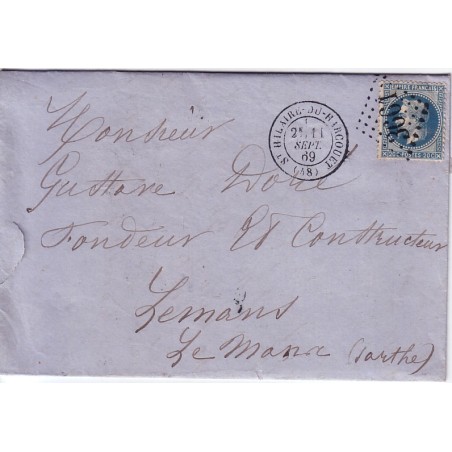 EMPIRE FRANÇAIS
ST HILAIRE-DU-HARCOUET
2E 11
SEPT.
69
(48)
Monsieur
Gustave Doré
Fondeur Et Constructeur
Lemans
Le Mans (Sarthe)